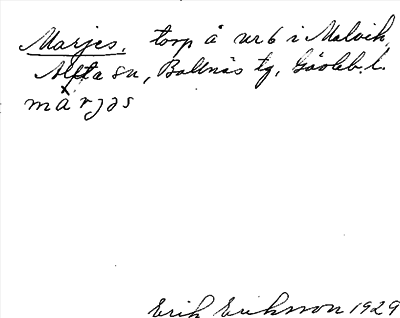 Marjes, torp å nr 6 i Malvik,
Alfta sn, Bollnäs tg, Gävleb. l.
märjəs
Erik Eriksson 1929